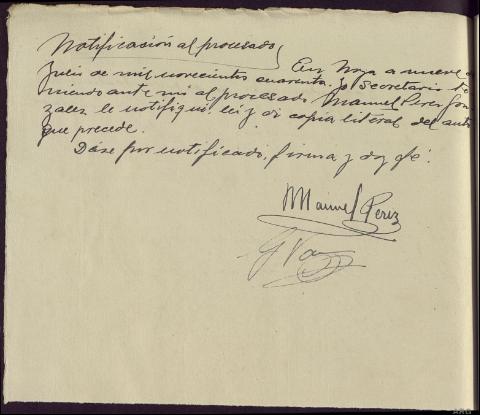 Notificación al procesado} En Noya a nueve de
Julio de mil novecientos cuarenta. yo Secretario te
niendo ante mi al procesado Manuel Perez Gon
zalez le notifiqué, leí y di copia literal del auto
que precede.
Dáse por notificado, firma y doy fé.
Manuel Perez